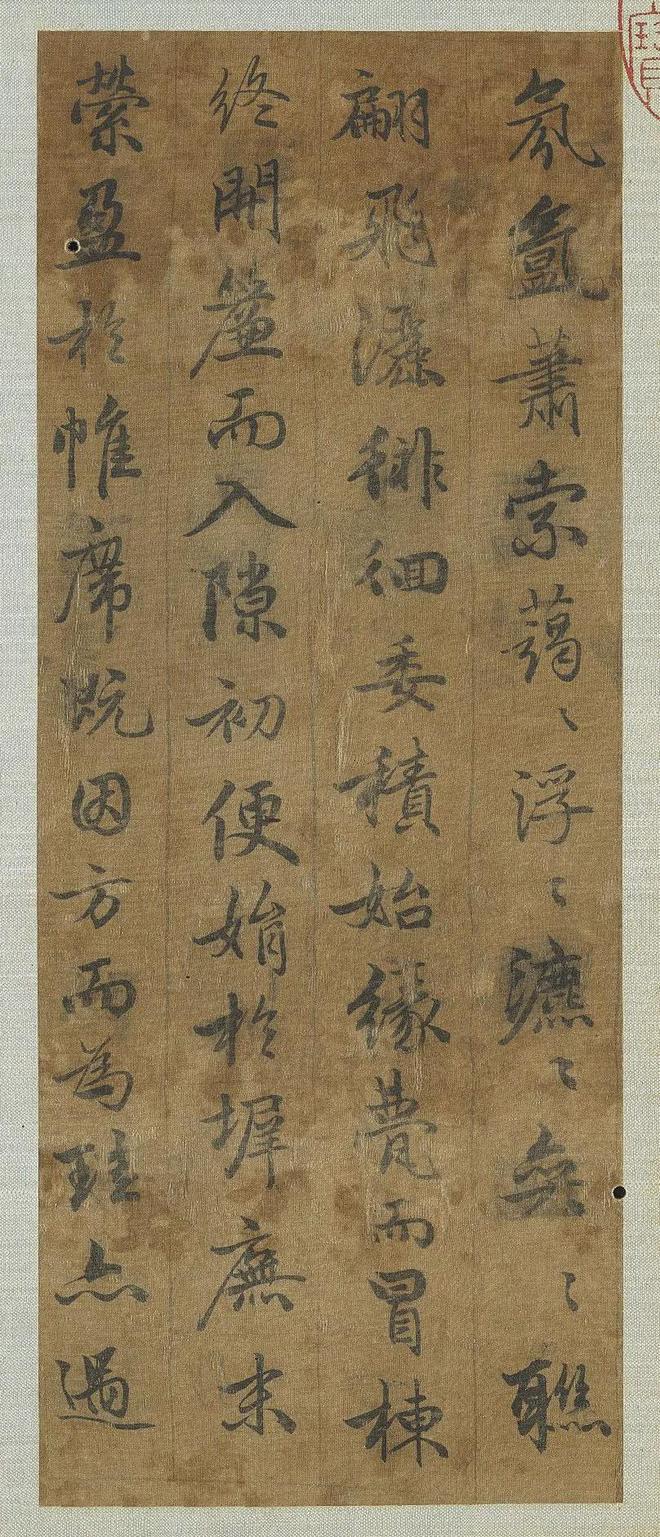 氛氲蕭索藹〻浮〻瀌〻奕〻聯
翩飛灑徘徊委積始緣甍而冒棟
終開簾而入隙初便娟於墀廡末
縈盈於帷席既因方而為珪亦過